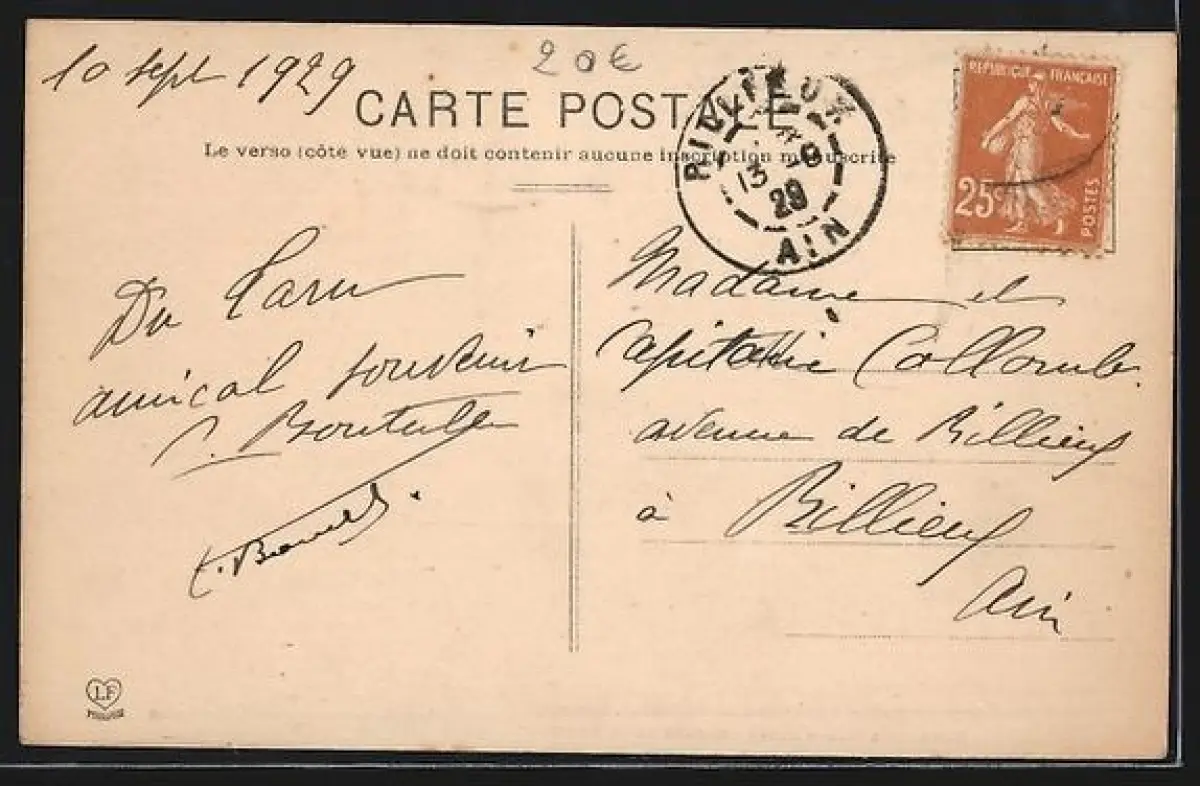 10 sept 1929
20€
CARTE POSTALE
Le verso (côté vue) ne doit contenir aucune inscription manuscrite
RILLIEUX
13 -9
29
AIN
REPUBLIQUE FRANÇAISE
25c
POSTES
Du Tarn
amical souvenir
Madame et
Capitaine Collomb
avenue de Rillieux
à Rillieux
Ain
LF